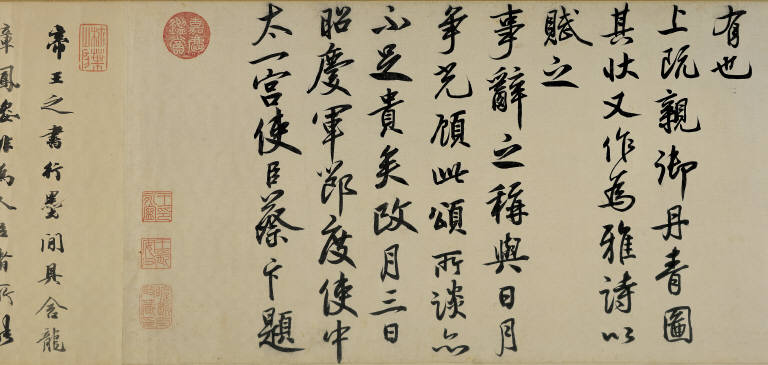 有也
上既親御丹青圖
其狀又作為雅詩以
賦之
事辭之稱與日月
爭光顧此頌所談亦
不足貴矣政月三日
昭慶軍節度使中
太一宮使臣蔡卞題
嘉慶鑑賞
帝王之書行墨間具含龍
章鳳姿非為人臣者所